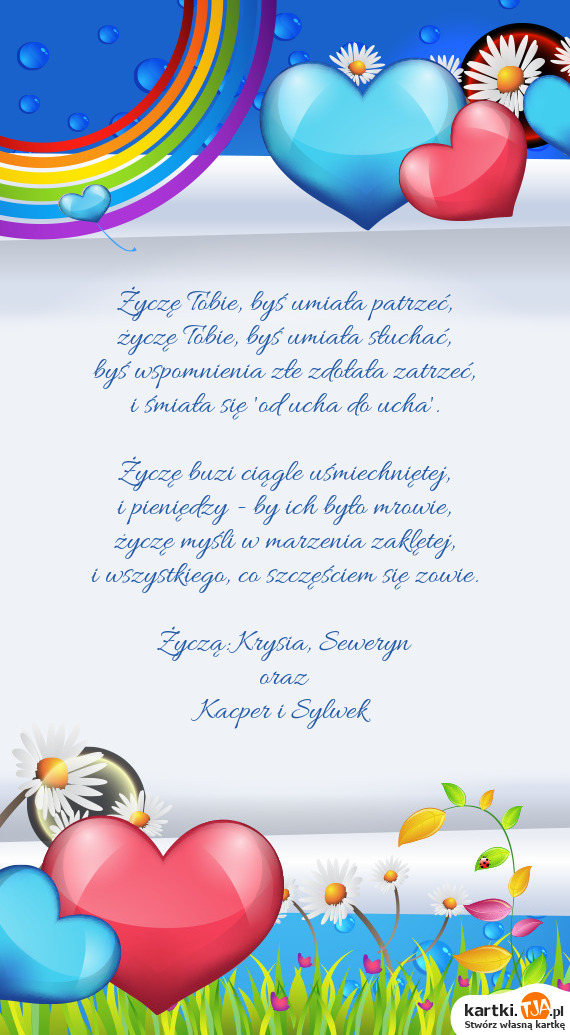 Życzę Tobie, byś umiała patrzeć,
życzę Tobie, byś umiała słuchać,
byś wspomnienia złe zdołała zatrzeć,
i śmiała się 'od ucha do ucha'.
Życzę buzi ciągle uśmiechniętej,
i pieniędzy - by ich było mrowie,
życzę myśli w marzenia zaklętej,
i wszystkiego, co szczęściem się zowie.
Życzą: Krysia, Seweryn
oraz
Kacper i Sylwek
kartki.TJA.pl
Stwórz własną kartkę